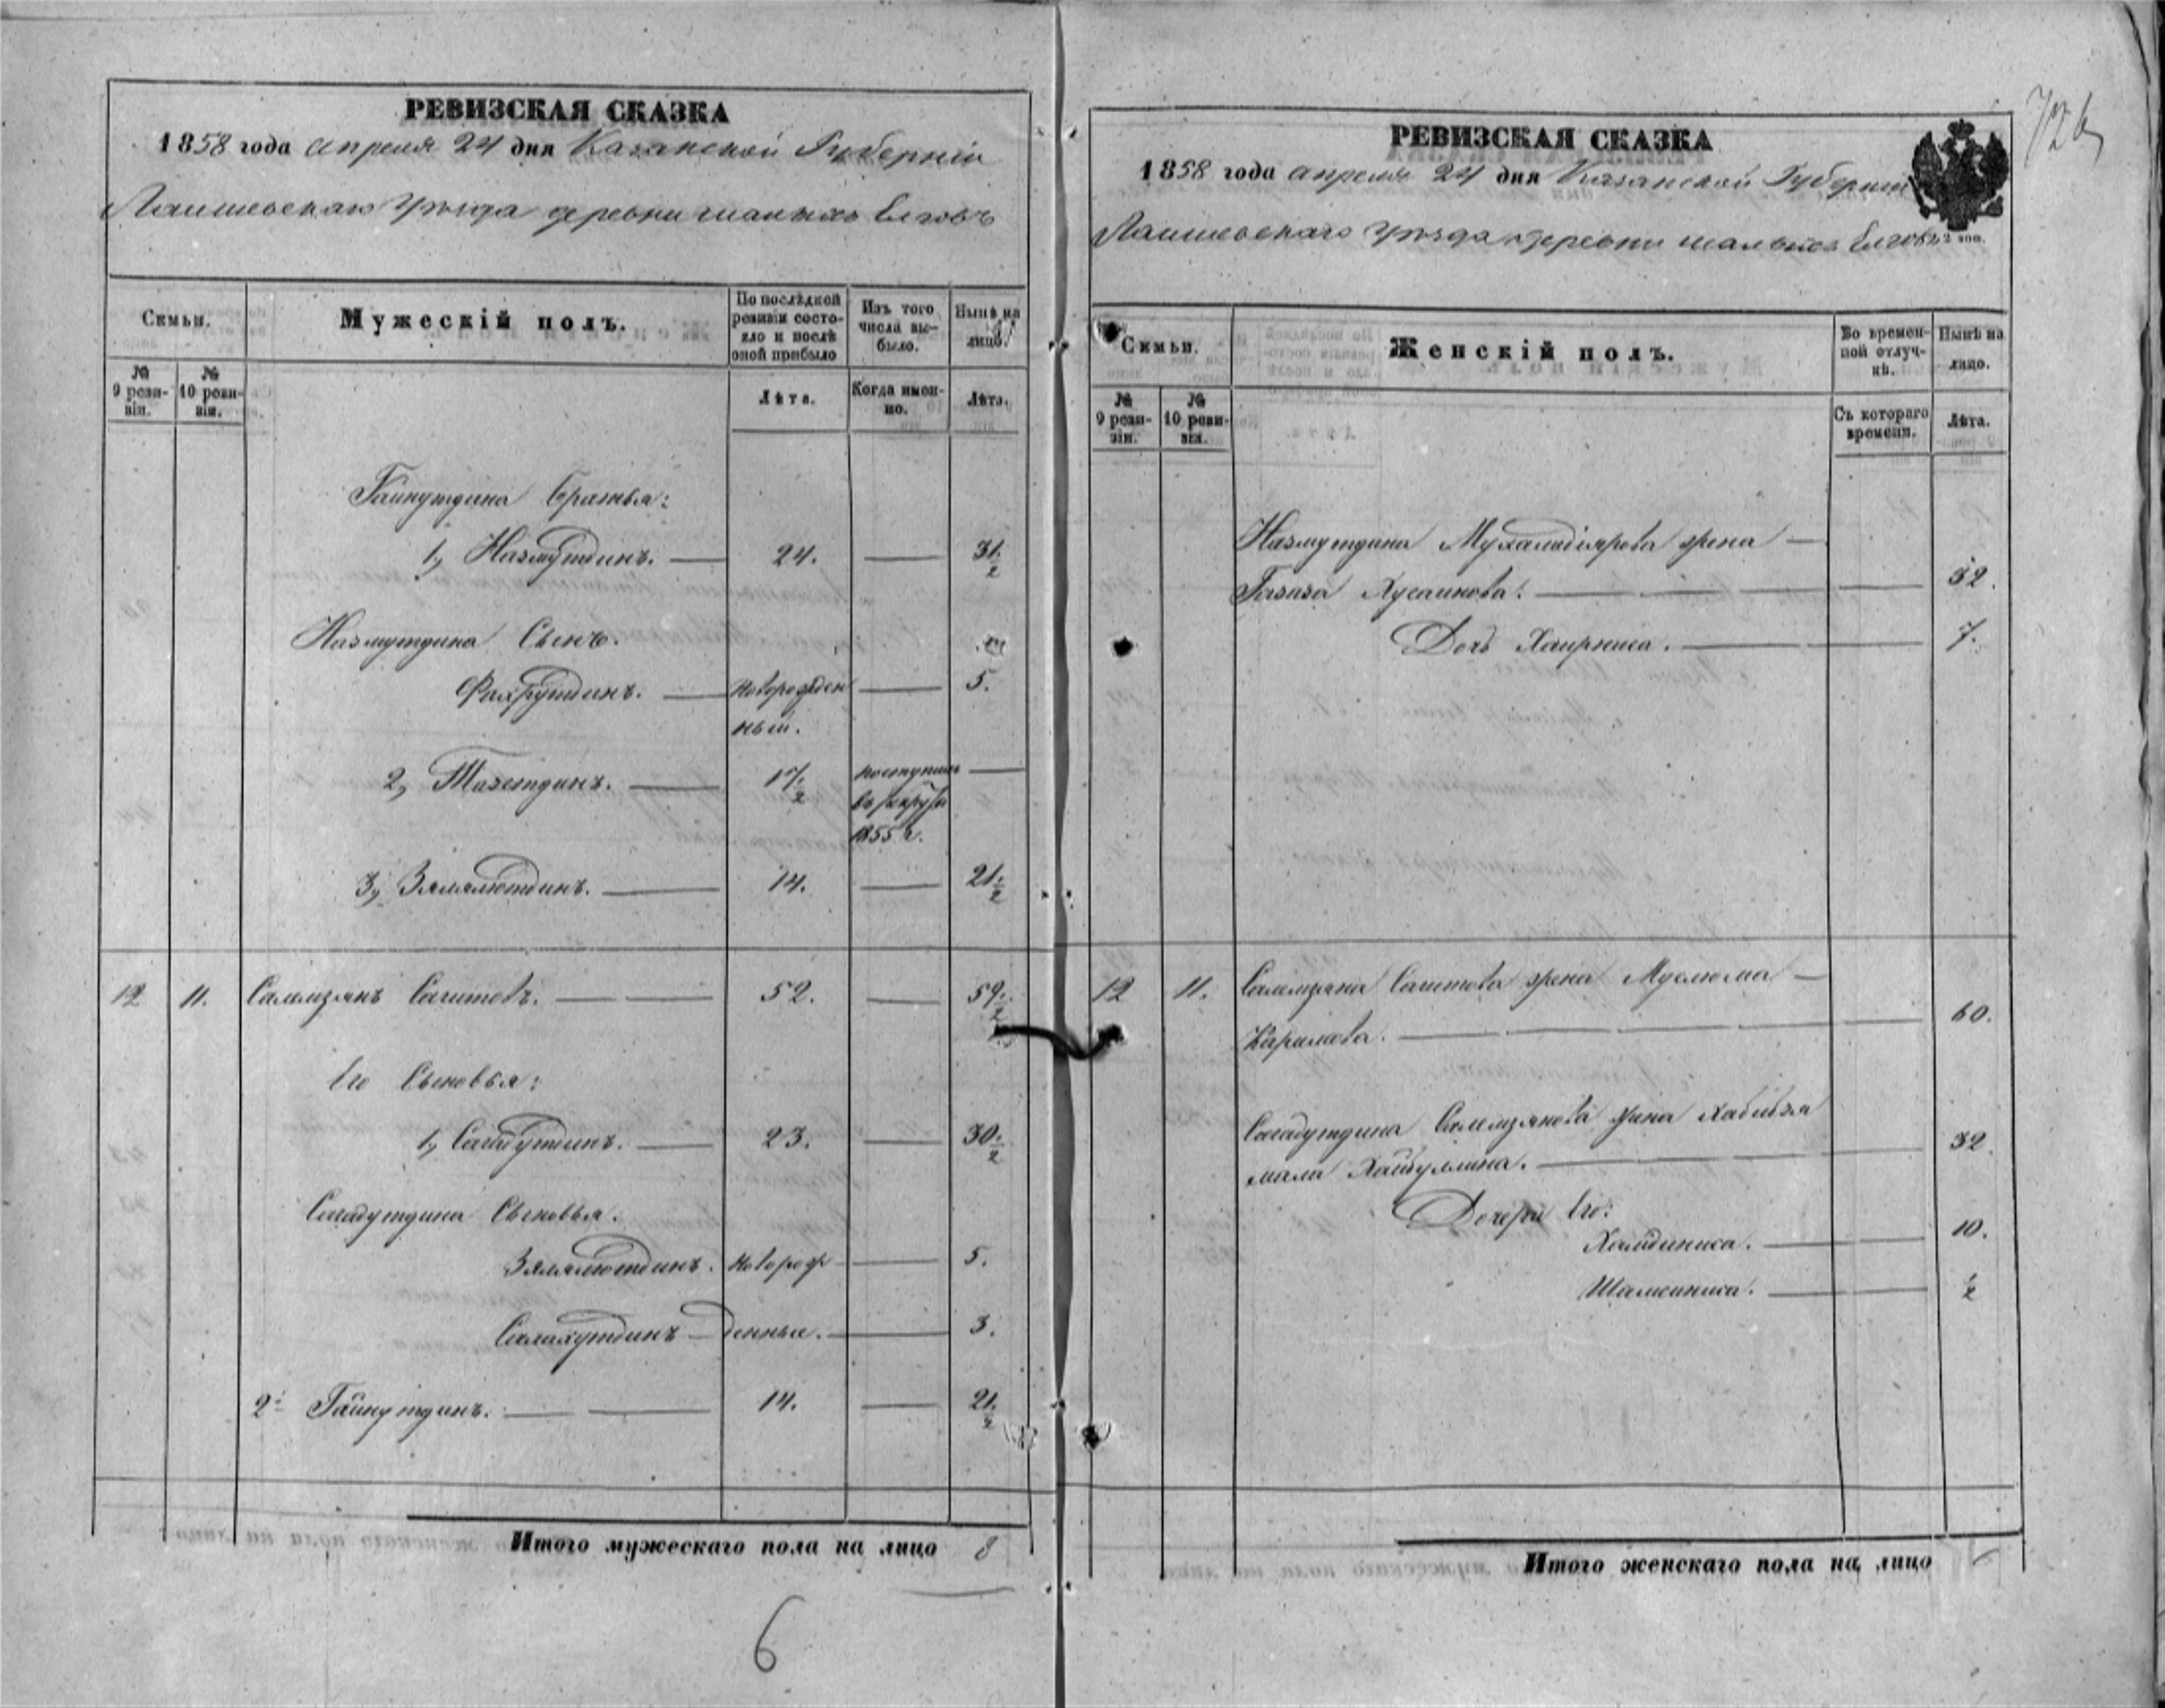 РЕВИЗСКАЯ СКАЗКА
1858 года апреля 24 дня Казанской Губернiи
Лаишевскаго Уѣзда деревни малыхъ Елговъ
Семьи.
Мужескiй полъ.
По послѣдней ревизiи состояло и послѣ оной прибыло
Изъ того числа выбыло.
Нынѣ на лицо.
№ 9 ревизiи.
№ 10 ревизiи.
Лѣта.
Когда именно.
Лѣта.
Гайнутдина братья:
1, Назмутдинъ. — 24. — 31 1/2
Назмутдина Сынъ.
Фахрутдинъ. — новорожден — 5.
ный.
2, Тазетдинъ. — 17 1/2 поступилъ —
въ рекруты
1855 г.
3, Зялялютдинъ. — 14. — 21 1/2
12 11. Салемзянъ Сагитовъ. — 52. — 59 1/2
Его Сыновья:
1, Сагадутдинъ. — 23. — 30 1/2
Сагадутдина Сыновья:
Зялялютдинъ. новорож — 5.
Салахутдинъ — денные. — 3.
2й Гайнутдинъ. — 14. — 21 1/2
Итого мужескаго пола на лицо 8
6
726
РЕВИЗСКАЯ СКАЗКА
1858 года апреля 24 дня Казанской Губернiи
Лаишевскаго Уѣзда деревни малыхъ Елговъ
2 коп.
Семьи.
Женскiй полъ.
Во временной отлучкѣ.
Нынѣ на лицо.
№ 9 ревизiи.
№ 10 ревизiи.
Съ котораго времени.
Лѣта.
Назмутдина Мухамедiярова жена —
Газиза Хусаинова. — 32.
Дочь Хаирниса. — 7.
12 11. Салемзяна Сагитова жена Муслюма —
Каримова. — 60.
Сагадутдина Салемзянова жена Хабибзя
мала Хайбуллина. — 32.
Дочери Его:
Хамдиниса. — 10.
Шамсиниса. — 1/2
Итого женскаго пола на лицо